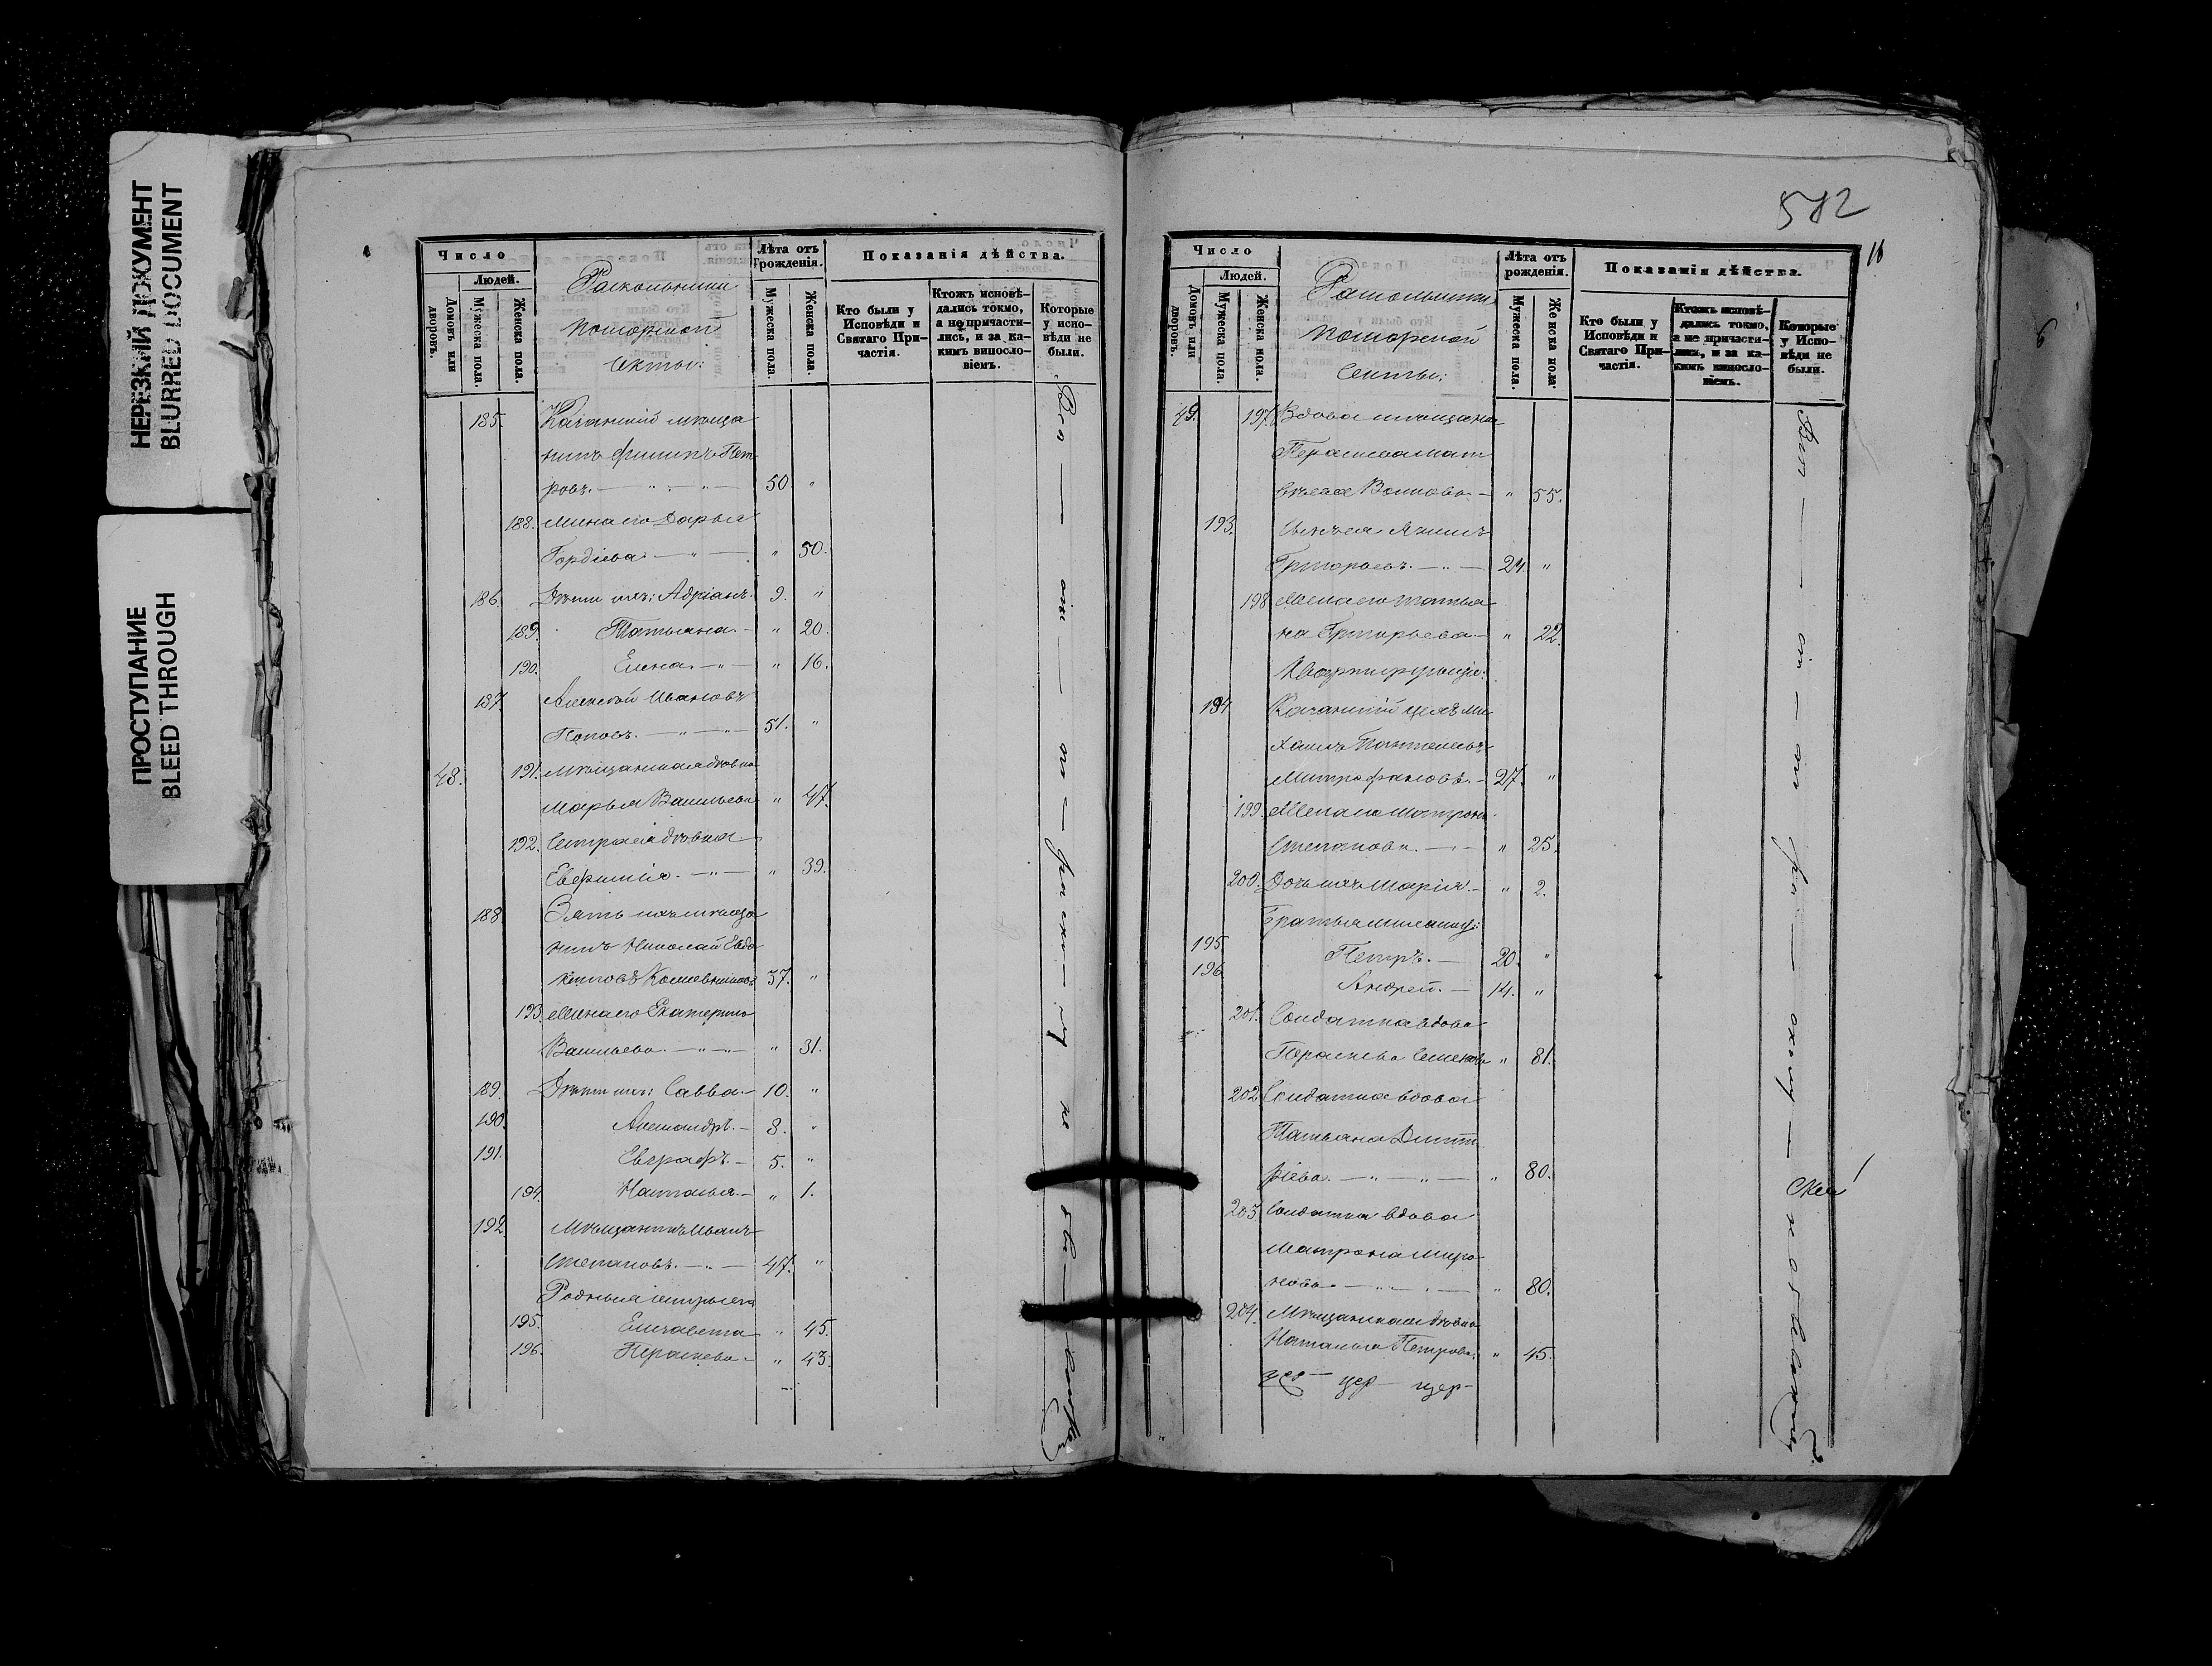 НЕРЕЗКИЙ ДОКУМЕНТ
BLURRED DOCUMENT
ПРОСТУПАНИЕ
BLEED THROUGH
Число
Людей.
Домовъ или дворовъ.
Мужеска пола.
Женска пола.
Раскольники
поморской
секты:
Лѣта отъ рожденія.
Мужеска пола.
Женска пола.
Показанія дѣйства.
Кто были у Исповѣди и Святаго Причастія.
Ктожъ исповѣдались токмо, а не причастились, и за какимъ винословіемъ.
Которые у исповѣди не были.
185. Казанскій мѣща
нинъ Филипъ Пет
ровъ. — " — " — 50 "
188. Жена его Дарья
Гордіева. — " — " 50.
186. Дѣти ихъ: Адріанъ. 9. "
189. Татьяна. — " 20.
190. Елена. — " — " 16.
187. Алексѣй Ивановъ
Поповъ. — " — " — 51. "
48. 191. Мѣщанская дѣвка
Марья Васильева " 47.
192. Сестра ея дѣвка
Евфимія. — " — " 39.
188. Зять ихъ мѣща
нинъ Николай Евдо
кимовъ 37. "
193. Жена его Екатерина
Васильева. — " — " 31.
189. Дѣти ихъ: Савва. — 10. "
190. Александръ. — 8. "
191. Евграфъ. — 5. "
194. Наталья. — " 1.
192 Мѣщанинъ Иванъ
Степановъ. — " — 47. "
Родныя сестры его
195. Елизавета " 45.
196. Парасковья. " 43.
582
Число
Людей.
Домовъ или дворовъ.
Мужеска пола.
Женска пола.
Раскольники
поморской
секты:
Лѣта отъ рожденія.
Мужеска пола.
Женска пола.
Показанія дѣйства.
Кто были у Исповѣди и Святаго Причастія.
Ктожъ исповѣдались токмо, а не причастились, и за какимъ винословіемъ.
Которые у Исповѣди не были.
49. 197. Вдова мѣщанка
" 55.
193. Сынъ ея
Григорьевъ. — " — 24. "
198. Жена его Татья
на Григорьева. — " 22.
194. Казанскій цех. Ми
хаилъ Пантелеевъ
Митрофановъ. — 27. "
199. Жена его Матрона
Степанова. — " — " 25.
200. Дочь ихъ Марія. — " 2.
Братья
195. Петръ. — 20. "
196. Андрей. — 14. "
201. Солдатка вдова
Семенова " 81.
202. Солдатка вдова
Татьяна Дмит
ріева. — " — " — " 80.
203. Солдатка вдова
Матрона Миро
нова. — " — " — " 80.
204. Мѣщанская дѣвка
Наталья Петрова. " 45.